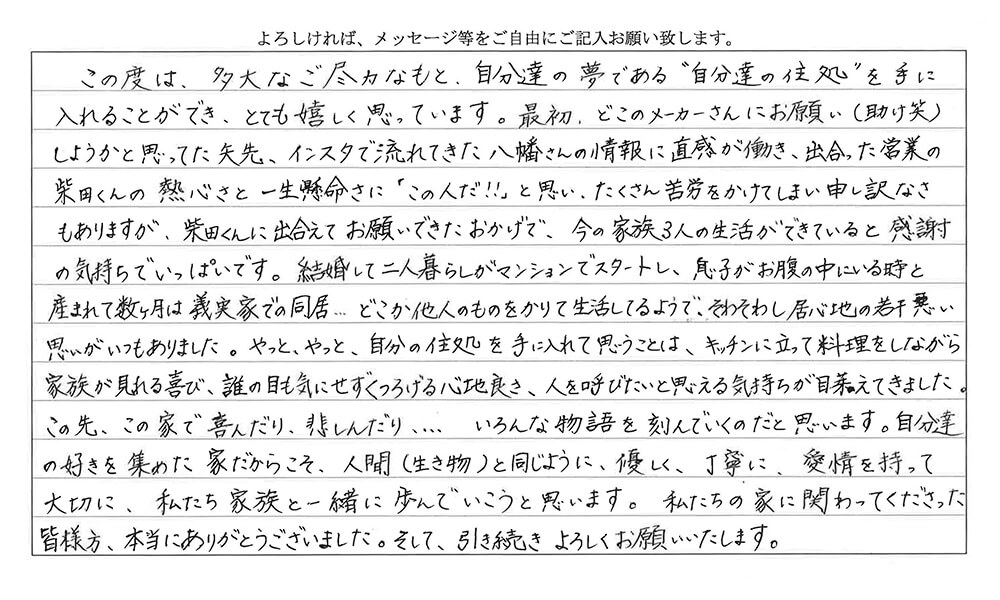 よろしければ、メッセージ等をご自由にご記入お願い致します。
この度は、多大なご尽力なもと、自分達の夢である"自分達の住処"を手に
入れることができ、とても嬉しく思っています。最初、どこのメーカーさんにお願い(助け笑)
しようかと思ってた矢先、インスタで流れてきた八幡さんの情報に直感が働き、出合った営業の
柴田くんの熱心さと一生懸命さに「この人だ!!」と思い、たくさん苦労をかけてしまい申し訳なさ
もありますが、柴田くんに出合えてお願いできたおかげで、今の家族3人の生活ができていると感謝
の気持ちでいっぱいです。結婚して二人暮らしがマンションでスタートし、息子がお腹の中にいる時と
産まれて数ヶ月は義実家での同居…どこか他人のものをかりて生活してるようで、そわそわし居心地の若干悪い
思いがいつもありました。やっと、やっと、自分の住処を手に入れて思うことは、キッチンに立って料理をしながら
家族が見れる喜び、誰の目も気にせずくつろげる心地良さ、人を呼びたいと思える気持ちが目萠えてきました。
この先、この家で喜んだり、悲しんだり、… いろんな物語を刻んでいくのだと思います。自分達
の好きを集めた家だからこそ、人間(生き物)と同じように、優しく、丁寧に、愛情を持って
大切に、私たち家族と一緒に歩んでいこうと思います。私たちの家に関わってくださった
皆様方、本当にありがとうございました。そして、引き続きよろしくお願いいたします。